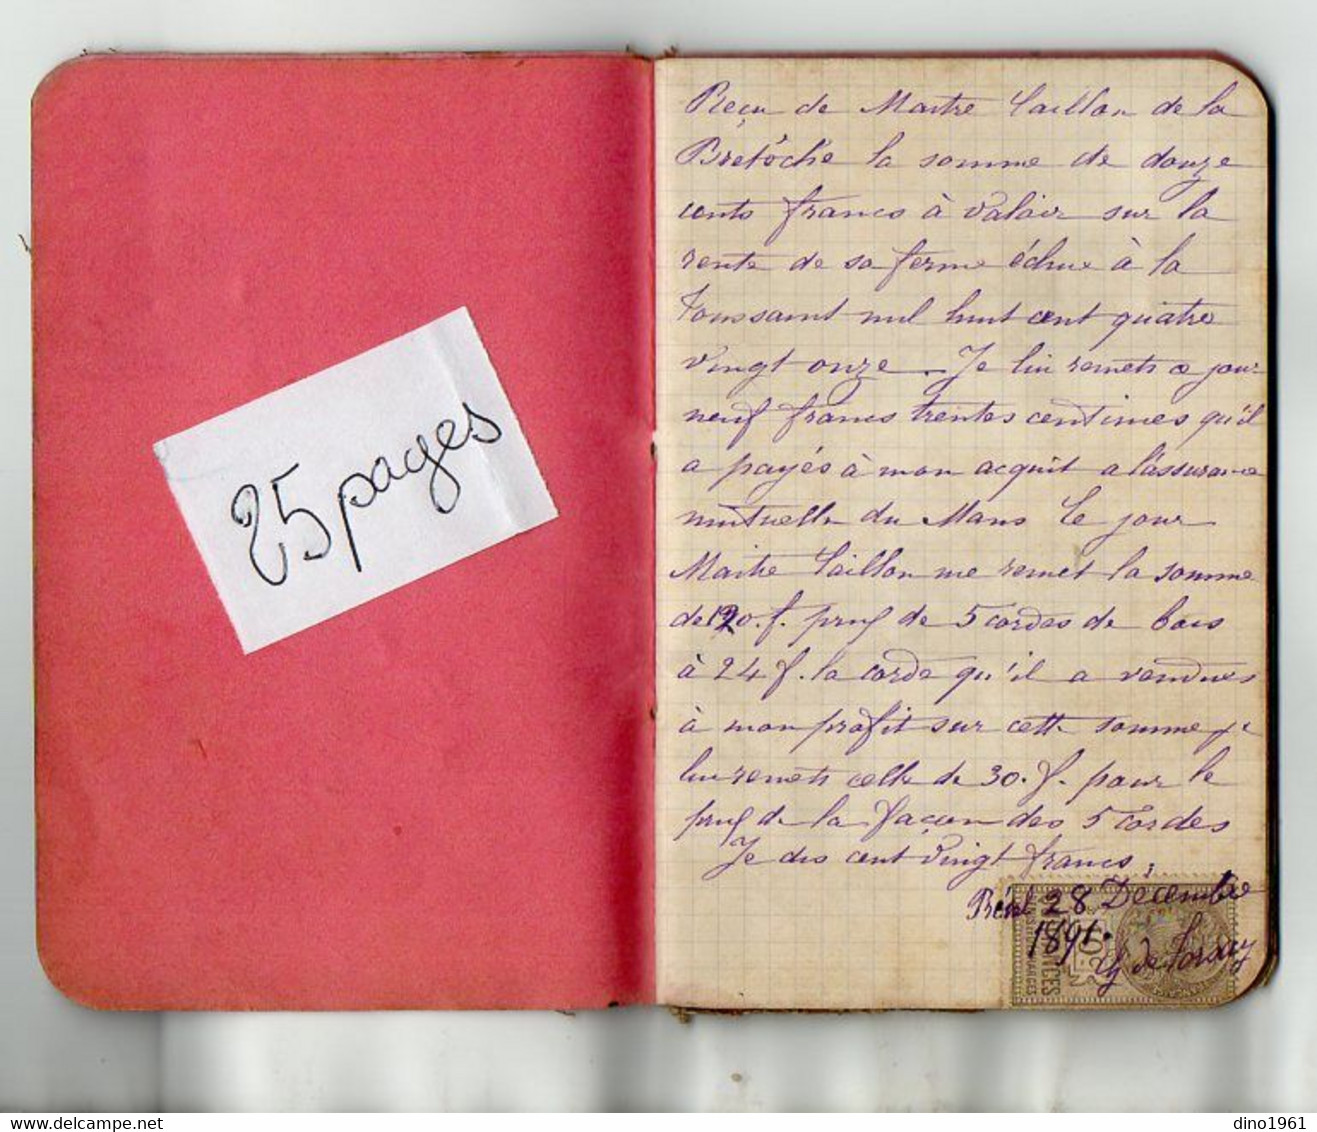 25 pages
Reçu de Maitre Caillon de la
Bretoche la somme de douze
cents francs à valoir sur la
rente de sa ferme échue à la
Toussaint mil huit cent quatre
vingt onze. Je lui remets ce jour
neuf francs trentes centimes qu'il
a payés à mon acquit a l'assurance
mutuelle du Mans Ce jour
Maitre Caillon me remet la somme
de 120. f. prix de 5 cordes de bois
à 24 f. la corde qu'il a vendues
à mon profit sur cette somme je
lui remets celle de 30. f. pour le
prix de la façon des 5 cordes
Je dis cent vingt francs.
28 Décembre
1891.
de
QUITTANCES
10c
delcampe.net
dino1961